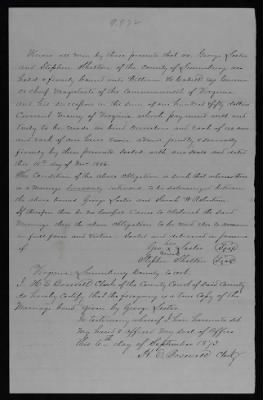 Know all men by these presents that we George Laster
and Stephen Shelton of the County of Lunenburg are
held & firmly bound unto William H Cabell Esq Governor
or chief Magistrate of the Commonwealth of Virginia
and his successors in the sum of one hundred fifty dollars
Current Money of Virginia which payment well and
truly to be made we bind ourselves and each of us our
and each of our heirs &c jointly & severally
firmly by these presents Sealed with our seals and dated
this 10th day of Nov 1806
The Condition of the above Obligation is such that whereas there
is a Marriage intended to be solemnized between
the above bound George Laster and Sarah W
If therefore there be no lawful Cause to obstruct the said
Marriage then the above Obligation to be void else to remain
in full force and virtue Sealed and delivered in presence
of
his
Geo X Laster (Seal)
mark
Stephen Shelton (Seal)
Virginia Lunenburg County to wit
I Clerk of the County Court of said County
do hereby Certify that the foregoing is a true Copy of the
Marriage bond given by George Laster
In testimony whereof I have hereunto set
my hand & affixed my Seal of Office
this day of September
Clerk